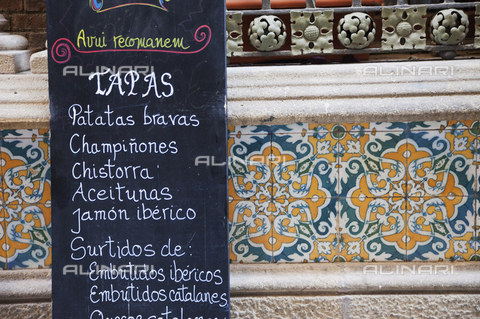 Avui recomanem
TAPAS
Patatas bravas
Champiñones
Chistorra
Aceitunas
jamón ibérico
Surtidos de:
Embutidos ibéricos
Embutidos catalanes
Quesos catalanes
ALINARI
ALINARI
ALINARI
ALINARI
ALINARI